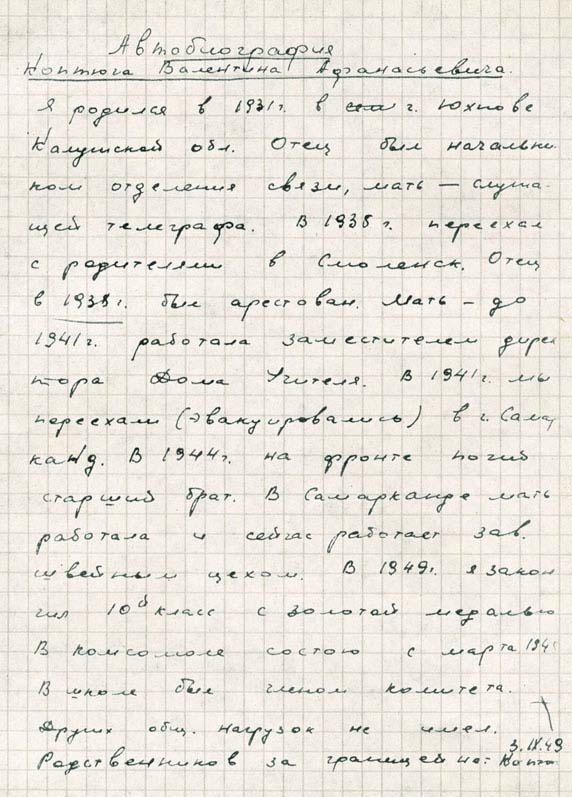 Автобиография
Коптюга Валентина Афанасьевича.
Я родился в 1931г. в г. Юхнове
Калужской обл. Отец был начальни
ком отделения связи, мать – служа-
щей телеграфа. В 1938г. переехал
с родителями в Смоленск. Отец
в 1938г. был арестован. Мать – до
1941г. работала заместителем дирек
тора Дома Учителя. В 1941г. мы
переехали (эвакуировались) в г. Самар
канд. В 1944г. на фронте погиб
старший брат. В Самарканде мать
работала и сейчас работает зав.
швейным цехом. В 1949г. я закон
чил 10й класс с золотой медалью
В комсомоле состою с марта 194
В школе был членом комитета.
Других общ. нагрузок не имел.
3.IX.49
Родственников за границей не: Копт